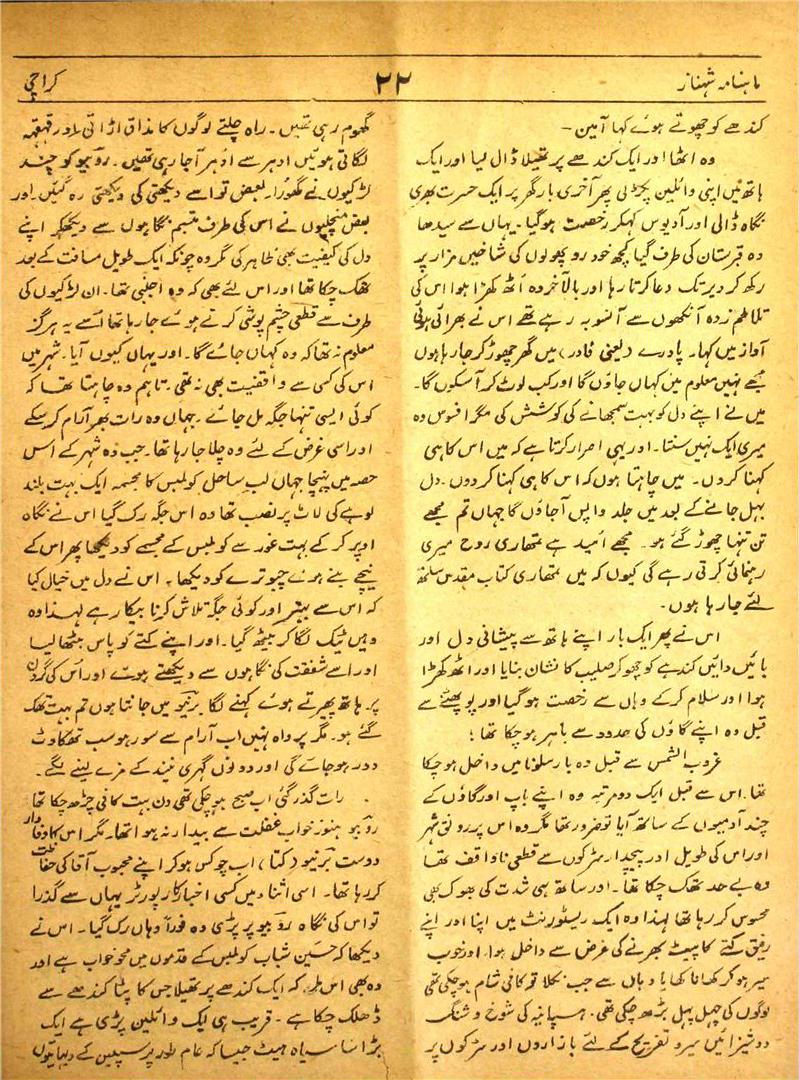 ماہنامہ شہناز
۲۲
کراچی
کندھے کو چھوتے ہوئے کہا آمین ـ
وہ اٹھا اور ایک کندھے پر تھیلا ڈال لیا اور ایک
ہاتھ میں اپنی وائلین پکڑ لی پھر آخری بار گھر پر ایک حسرت بھری
نگاہ ڈالی اور آدیوس کہکر رخصت ہوگیا۔ یہاں سے سیدھا
وہ قبرستان کی طرف گیا کچھ خود رو پھولوں کی شاخیں مزار پر
رکھ کر دیر تک دعا کرتا رہا اور بالآخر وہ اُٹھ کھڑا ہوا اس کی
تلاطم زدہ آنکھوں سے آنسو بہہ رہے تھے اس نے بھرائی ہوئی
آواز میں کہا۔ پادرے (یعنی فادر) میں گھر چھوڑ کر جارہا ہوں
مجھے نہیں معلوم میں کہاں جاؤں گا اور کب لوٹ کر آسکوں گا۔
میں نے اپنے دل کو بہت سمجھانے کی کوشش کی مگر افسوس وہ
میری ایک نہیں سنتا۔ اور یہی اصرار کرتا ہے کہ میں اس کا ہی
کہنا کردں۔ میں چاہتا ہوں کہ اس کا ہی کہنا کردوں۔ دل
بہل جانے کے بعد میں جلد واپس آجاؤں گا جہاں تم مجھے
تن تنہا چھوڑ گئے ہو۔ مجھے اُمید ہے تمھاری روح میری
رہنمائی کرتی رہے گی کیوں کہ میں تمھاری کتاب مقدس ساتھ
لئے جارہا ہوں۔
اس نے پھر ایک بار اپنے ہاتھ سے پیشانی دل اور
بائیں دائیں کندھے کو چھوکر صلیب کا نشان بنایا اور اٹھ کھڑا
ہوا اور سلام کرکے وہاں سے رخصت ہوگیا اور پو پھٹنے سے
قبل وہ اپنے گاؤں کی حدود سے باہر ہوچکا تھا ؛
غروب الشمس سے قبل وہ بارسلونا میں داخل ہوچکا
تھا۔ اس سے قبل ایک دو مرتبہ وہ اپنے باپ اور گاؤں کے
چند آدمیوں کے ساتھ آیا تو ضرور تھا مگر وہ اس پر رونق شہر
اور اس کی طویل اور پیچدار سڑکوں سے قطعی ناواقف تھا
وہ بے حد تھک چکا تھا۔ اور ساتھ ہی شدت کی بھوک بھی
محسوس کررہا تھا لہذا وہ ایک ریسٹورنٹ میں اپنا اور اپنے
رفیق کتے کا پیٹ بھرنے کی غرض سے داخل ہوا۔ اور خوب
سیر ہوکر کھانا کھایا وہاں سے جب نکلا تو کافی شام ہوچکی تھی
لوگوں کی چہل پہل بڑھ چکی تھی۔ ہسپانیہ کی شوخ و شنگ
دوشیزائیں سیرو تفریح کے لئے بازاروں اور سڑکوں پر
گھوم رہی تھیں۔ راہ چلتے لوگوں کا مذاق اڑاتی اور قہقہہ
لگاتی ہوئیں ادہر سے اُدہر آجا رہی تھیں۔ روبیو کو چند
لڑکیوں نے گھورا۔ بعض تو اسے دیکھتی کی دیکھتی رہ گئیں۔ اور
بعض منچلیوں نے اس کی طرف متبسم نگاہوں سے دیکھکر اپنے
دل کی کیفیت بھی ظاہر کی مگر وہ چونکہ ایک طویل مسافت کے بعد
تھک چکا تھا اور اس لئے بھی کہ وہ اجنبی تھا۔ ان لڑکیوں کی
طرف سے قطعی چشم پوشی کرتے ہوئے جارہا تھا اُسے یہ ہرگز
معلوم نہ تھا کہ وہ کہاں جائے گا۔ اور یہاں کیوں آیا۔ شہر میں
اس کی کسی سے واقفیت بھی نہ تھی۔ تاہم وہ چاہتا تھا کہ
کوئی ایسی تنہا جگہ مل جائے۔ جہاں وہ رات بھر آرام کرسکے
اور اسی غرض کے لئے وہ چلا جارہا تھا۔ جب وہ شہر کے اس
حصہ میں پہنچا جہاں لب ساحل کولمبس کا مجسمہ ایک بہت بلند
لوہے کی لاٹ پر نصب تھا وہ اس جگہ رک گیا اس نے نگاہ
اوپر کرکے بہت غور سے کولمبس کے مجسمے کو دیکھا پھر اس کے
نیچے بنے ہوئے چبوترے کو دیکھا۔ اس نے دل میں خیال کیا
کہ اس سے بہتر اور کوئی جگہ تلاش کرنا بیکار ہے لہذا وہ
وہیں ٹیک لگا کر بیٹھ گیا۔ اور اپنے کتے کو پاس بیٹھا لیا
اور اسے شفقت کی نگاہوں سے دیکھتے ہوئے اور اس کی گردن
پر ہاتھ پھرتے ہوئے کہنے لگا برنیو میں جانتا ہوں تم بہت تھک
گئے ہو۔ مگر پرواہ نہیں اب آرام سے سو رہو سب تھکاوٹ
دور ہوجائے گی اور دونوں گہری نیند کے مزے لینے لگے۔
رات گذر گئی اب صبح ہوچکی تھی دن بہت کافی چڑھ چکا تھا
روبیو ہنوز خواب غفلت سے بیدار نہ ہوا تھا۔ مگر اس کا وفادار
دوست برنیو (کتا) اب چوکس ہوکر اپنے محبوب آقا کی حفاظت
کررہا تھا۔ اسی اثناء میں کسی اخبار کا رپورٹر یہاں سے گذرا
تو اس کی نگاہ روبیو پر پڑی وہ فوراً وہاں رک گیا۔ اس نے
دیکھا کہ حسین شباب کولمبس کے قدموں میں محو خواب ہے اور
وہ بھی اس طرح کہ ایک کندھے پر تھیلا جس کا پٹا کندھے سے
ڈھلک چکا ہے۔ قریب ہی ایک وائلین پڑی ہے ایک
بڑا سا سیاہ ہیٹ جیسا کہ عام طور پر سپین کے دیہاتیوں